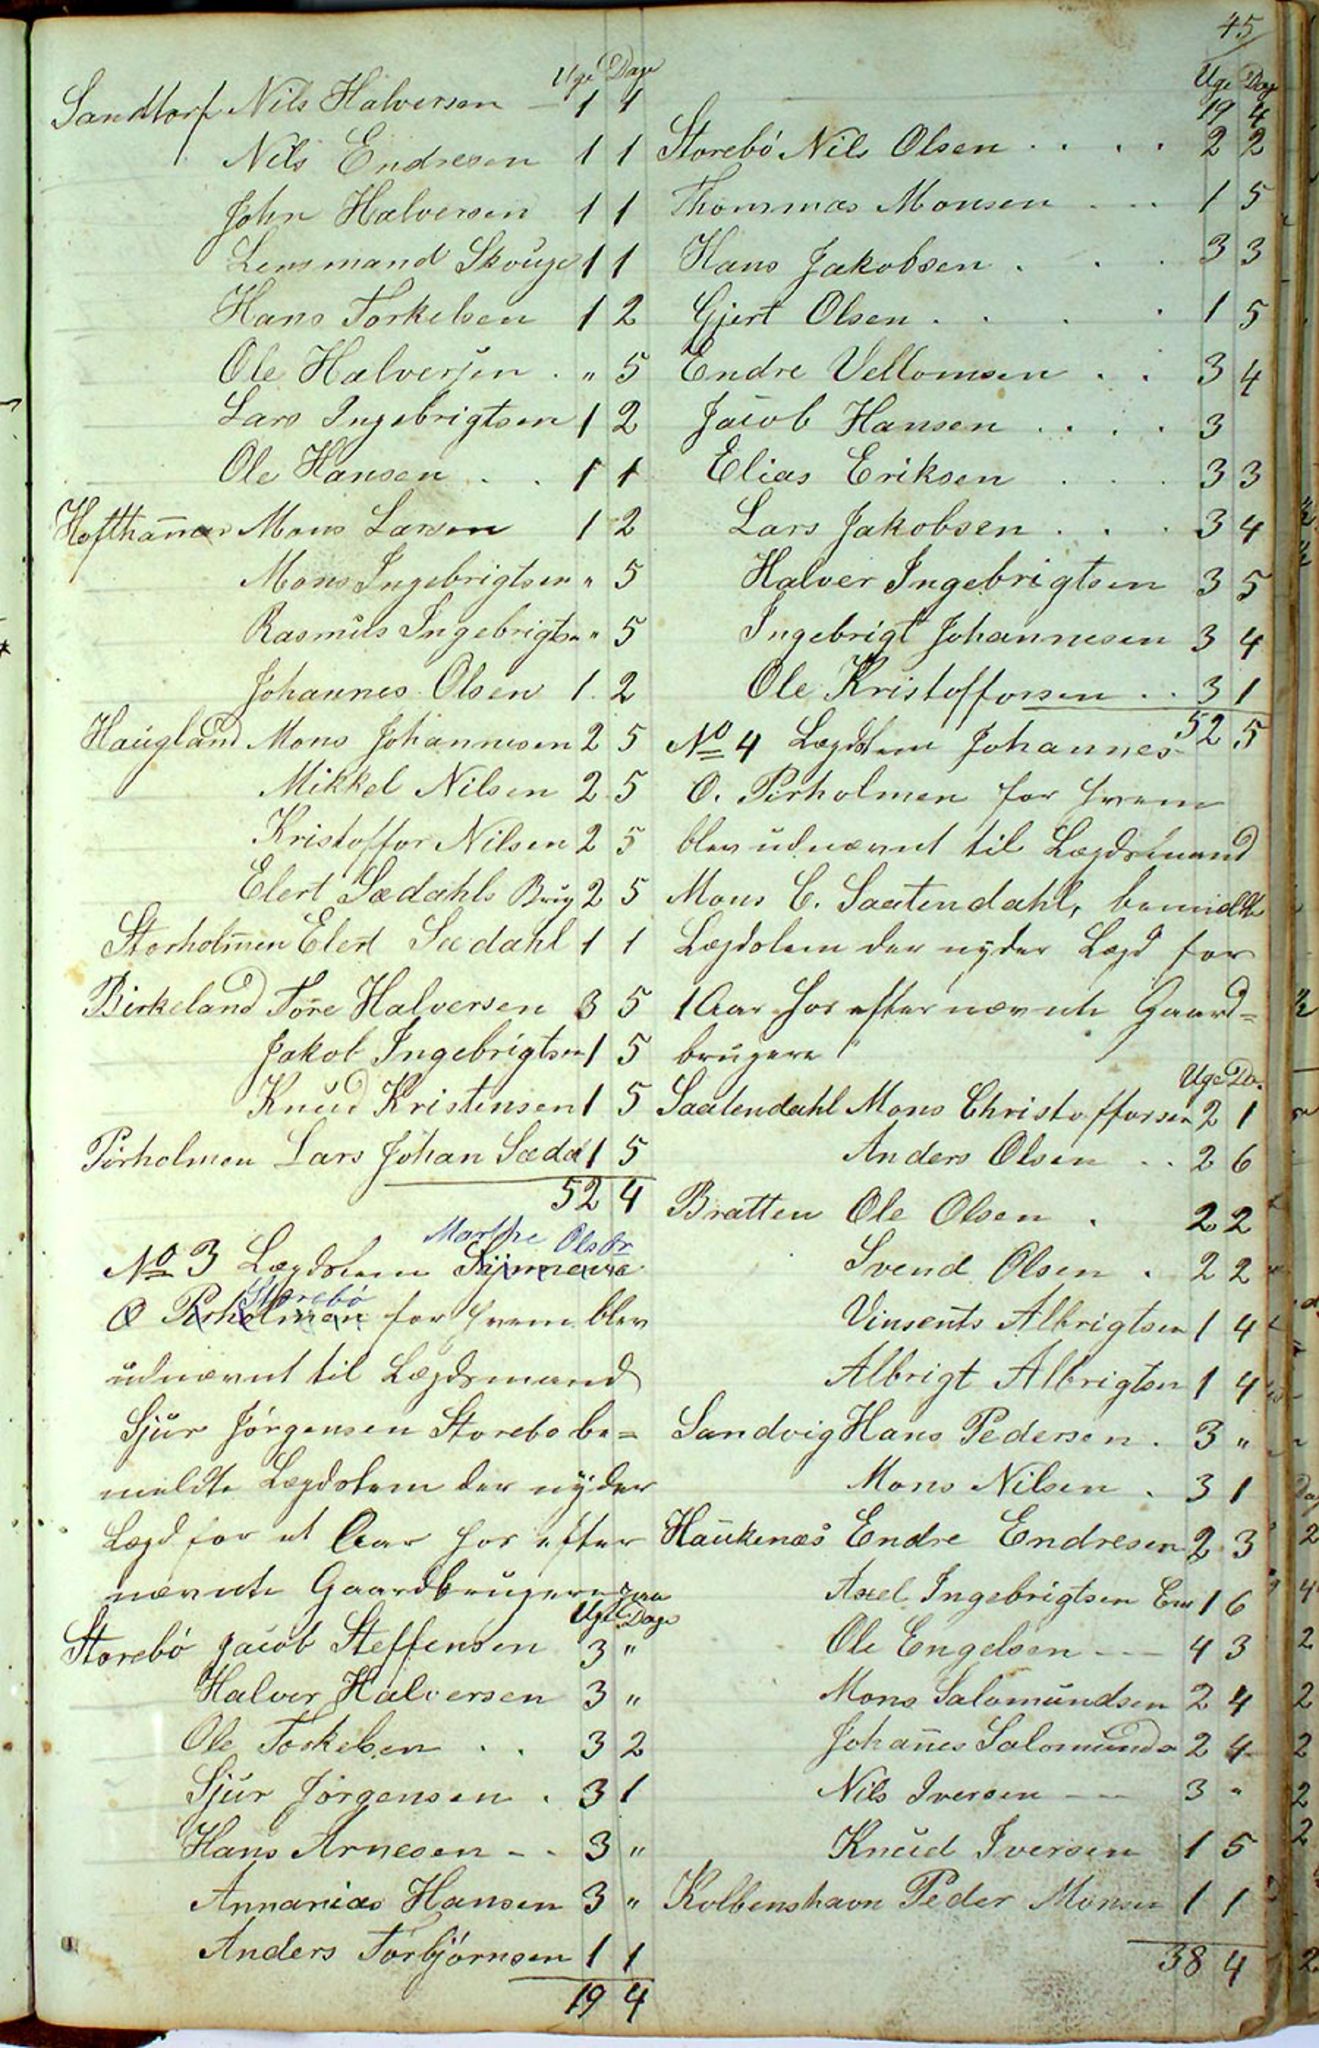 45
Uge Dage
Sandtorf Nils Halversen 1 1
Nils Endresen 1 1
John Halversen 1 1
Lensmand Skouge 1 1
Hans Torkelsen 1 2
Ole Halversen . " 5
Lars Ingebrigtsen 1 2
Ole Hansen . . 1 1
Hofthamar Mons Larsen 1 2
Mons Ingebrigtsen " 5
Rasmus Ingebrigtsn " 5
Johannes Olsen 1 2
Haugland Mons Johannesen 2 5
Mikkel Nilsen 2 5
Kristoffor Nilsen 2 5
Elert Sædahls Brug 2 5
Storholmen Elert Sædahl 1 1
Birkeland Tore Halversen 3 5
Jakob Ingebrigtsen 1 5
Knud Kristensen 1 5
Pirholmen Lars Johan Sædal 1 5
52 4
Marthe Olsdr
No 3 Lægdslem Sijmena
Storebø
O Pirholmen for hvem blev
udnævnt til Lægdsmand
Sjur Jørgensen Storebo be=
meldte Lægdslem der nyder
Lægd for et Aar hos efter
nævnte Gaardbrugere
Uge Dage
Storebø Jacob Steffensen 3 "
Halver Halversen 3 "
Ole Torkelsen . . 3 2
Sjur Jørgensen . 3 1
Hans Arnesen - - 3 "
Annanias Hansen 3 "
Anders Torbjørnsen 1 1
19 4
Uge Dage
19 4
Storebø Nils Olsen . . . . 2 2
Thommas Monsen . . . 1 5
Hans Jakobsen . . . 3 3
Gjert Olsen . . . . 1 5
Endre Vellomsen . . 3 4
Jacob Hansen . . . . 3
Elias Eriksen . . . 3 3
Lars Jakobsen . . . 3 4
Halver Ingebrigtsen 3 5
Ingebrigt Johannesen 3 4
Ole Kristofforsen . . 3 1
52 5
No 4 Lægdslem Johannes
O. Pirholmen for hvem
blev udnævnt til Lægdsmand
Mons C. Saatendahl, bemeldte
Lægdslem der nyder Lægd for
1 Aar hos efternævnte Gaard=
brugere
Uge Da.
Saatendahl Mons Christofforsen 2 1
Anders Olsen . . 2 6
Bratten Ole Olsen . 2 2
Svend Olsen . 2 2
Vinsents Albrigtsen 1 4
Albrigt Albrigtsen 1 4
Sandvig Hans Pedersen . 3 "
Mons Nilsen . 3 1
Haukenæs Endre Endresen 2 3
Axel Ingebrigtsen 1 6
Ole Engelsen - - - 4 3
Mons Salomundsen 2 4
Johannes Salomunds 2 4
Nils Iversen - - - 3 "
Knud Iversen 1 5
Kolbenshavn Peder Monsen 1 1
38 4